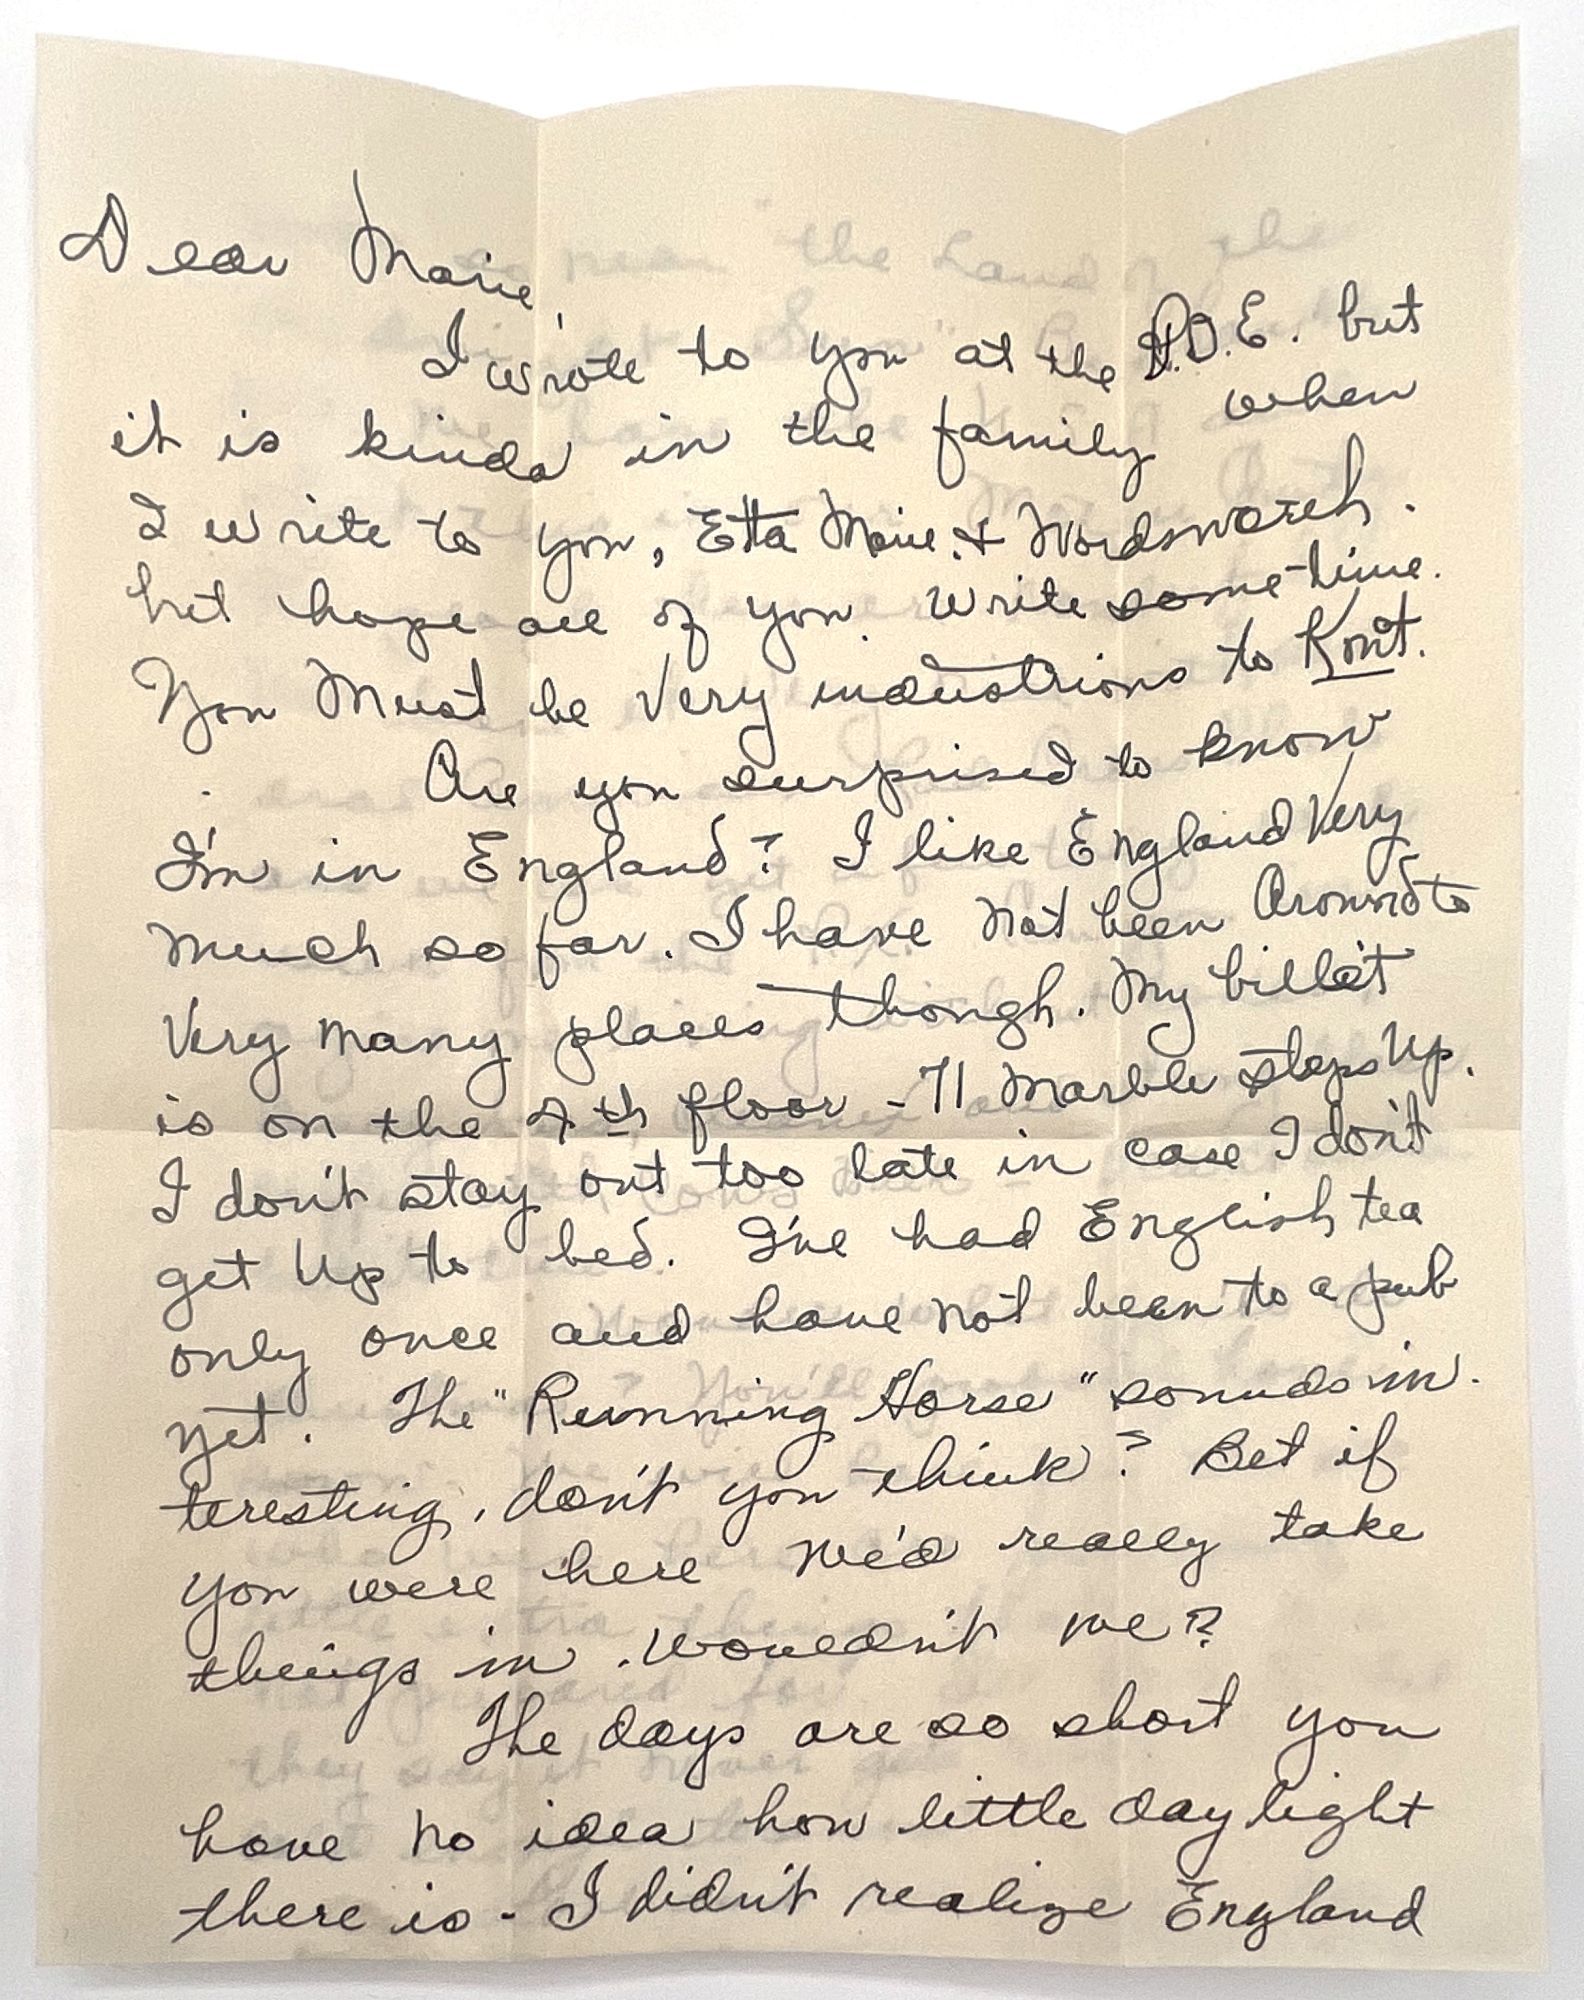 Dear Marie
I wrote to you at the P.O.E. but
it is kinda in the family when
I write to you, Etta Marie & Wordsworth.
but hope all of you write sometime.
You must be very industrious to
Are you surprised to know
I'm in England? I like England Very
much so far. I have not been Around to
Very many places though. My billet
is on the 4th floor - 71 marble steps Up.
I don't stay out too late in case I don't
get Up to bed. I've had English tea
only once and have not been to a pub
yet. The "Running Horse" sounds in-
teresting, don't you think? Bet if
you were here we'd really take
things in. wouldn't we?
The days are so short you
have no idea how little daylight
there is - I didn't realize England